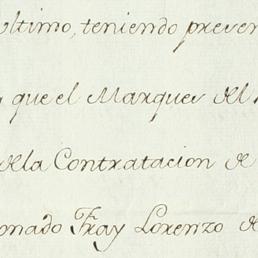 ultimo, teniendo preven
que el Marques del
de la Contratacion de
onado Fray Lorenzo de